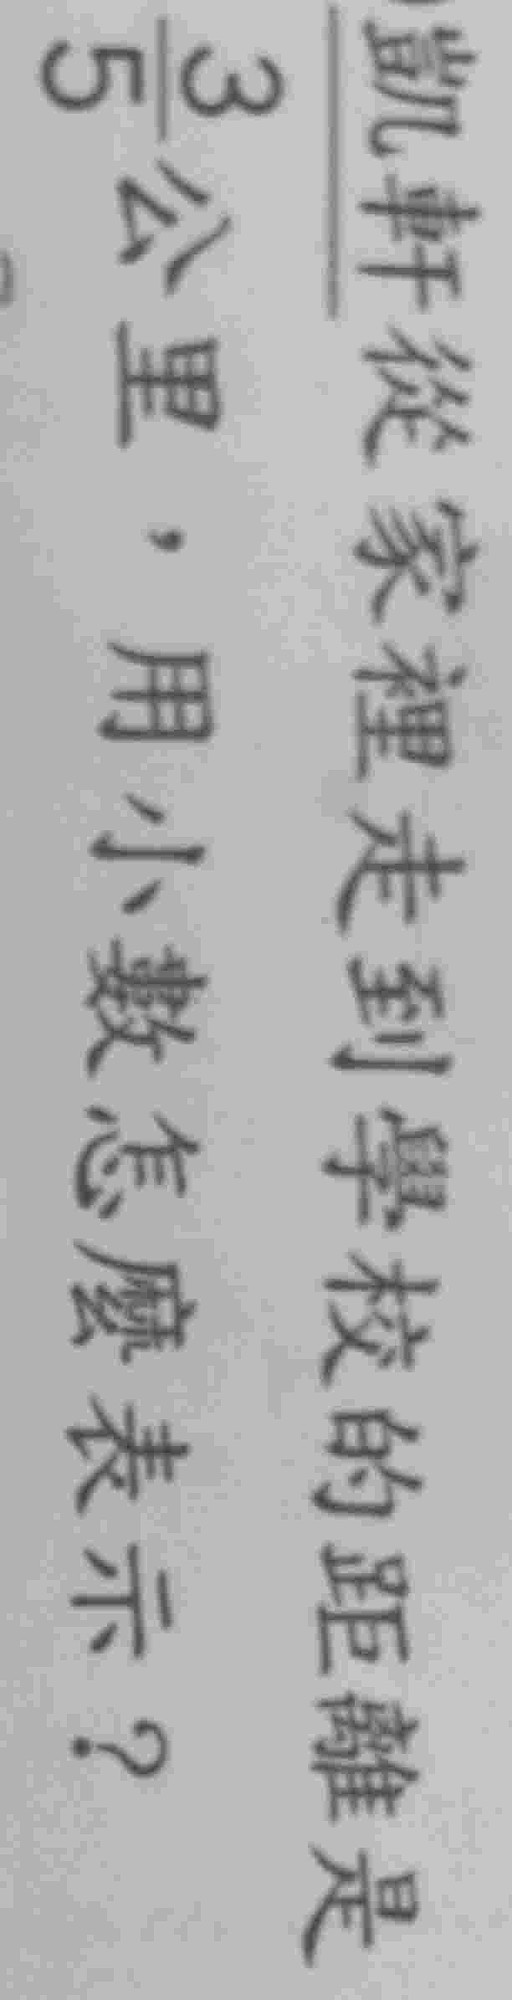 凱軒從家裡走到學校的距離是
3/5公里，用小數怎麼表示？